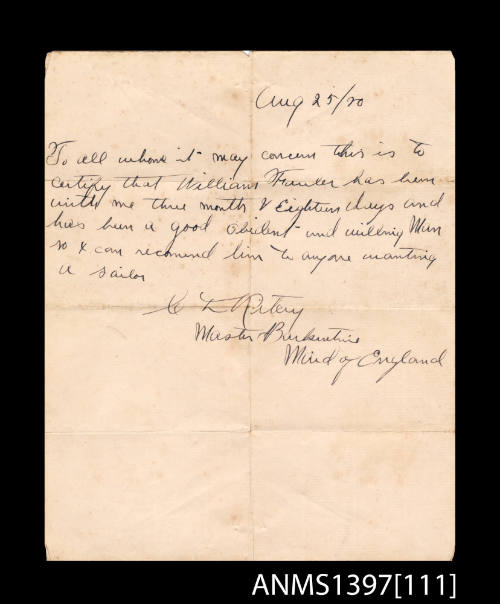 Aug 25/20
To all whom it may concern this is to
certify that William Fowler has been
with me three month & Eighteen days and
has been a good obident and willing Man
so I can recomend him to anyone wanting
a sailor
Master Barkentine
England
ANMS1397[111]